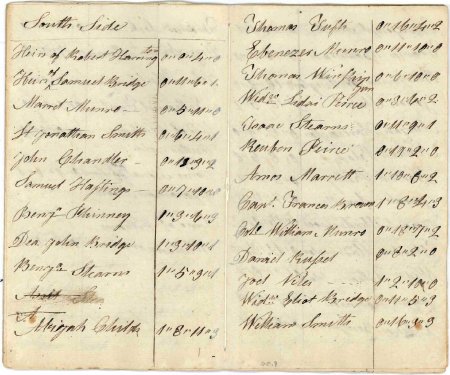 South Side
Heirs of Robert Harrington 0"0"4"0
Heirs of Samuel Bridge 0"11"6"1
Marret Munro 0"5"11"0
Lt Jonathan Smith 0"6"4"1
John Chandler 0"13"9"2
Samuel Hastings 0"7"10"0
Benjn Phinney 1"3"6"3
Dea John Bridge 1"3"10"1
Benjn Stearns 1"5"9"1
Abijah Childs 1"8"11"3
Thomas Tufts 0"16"4"2
Ebenezer Munro 0"11"10"0
Thomas Winship jun 0"6"10"0
Widw Peirce 0"3"6"2
Isaac Stearns 0"11"9"1
Reuben Peirce 0"19"2"0
Amos Marrett 1"10"8"2
Capt Francis Brown 1"8"4"3
Colo William Munro 0"18"7"2
Daniel Russel 0"7"2"0
Joel Viles 1"2"10"0
Widw Eliot Bridge 0"5"3
William Smith 0"16"9"3